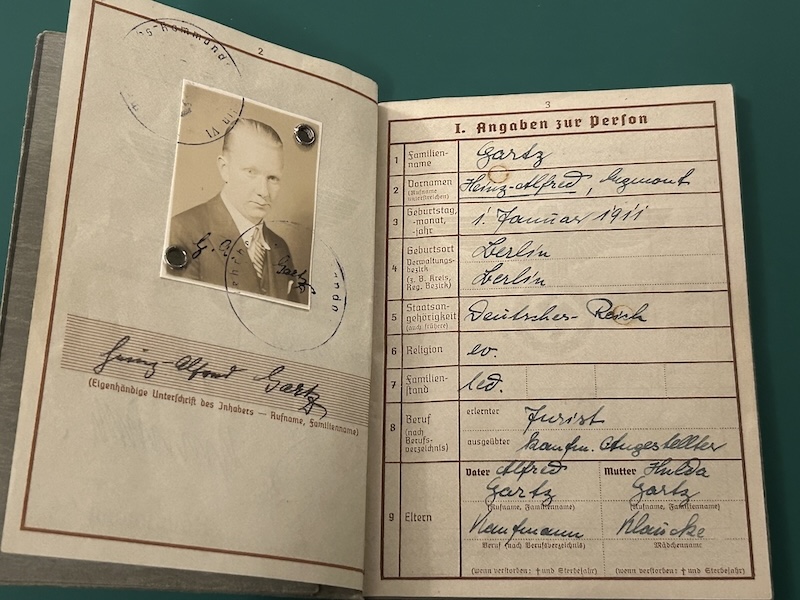 2
G.
Gartz
Heinz Alfred Gartz
(Eigenhändige Unterschrift des Inhabers — Rufname, Familienname)
3
I. Angaben zur Person
1 Familien-
name
Gartz
2 Vornamen
(Rufname
unterstreichen)
Heinz-Alfred, Egmont
3 Geburtstag,
-monat,
-jahr
1. Januar 1911
4 Geburtsort
Verwaltungs-
bezirk
(z. B. Kreis,
Reg. Bezirk)
Berlin
Berlin
5 Staatsan-
gehörigkeit
(auch frühere)
Deutsches-Reich
6 Religion
ev.
7 Familien-
stand
led.
8 Beruf
(nach
Berufs-
verzeichnis)
erlernter
Jurist
ausgeübter
Kaufm. Angestellter
9 Eltern
Vater Alfred
Gartz
(Rufname, Familienname)
Kaufmann
Beruf (nach Berufsverzeichnis)
(wenn verstorben: † und Sterbejahr)
Mutter Hulda
Gartz
(Rufname, Familienname)
Klaucke
Mädchenname
(wenn verstorben: † und Sterbejahr)